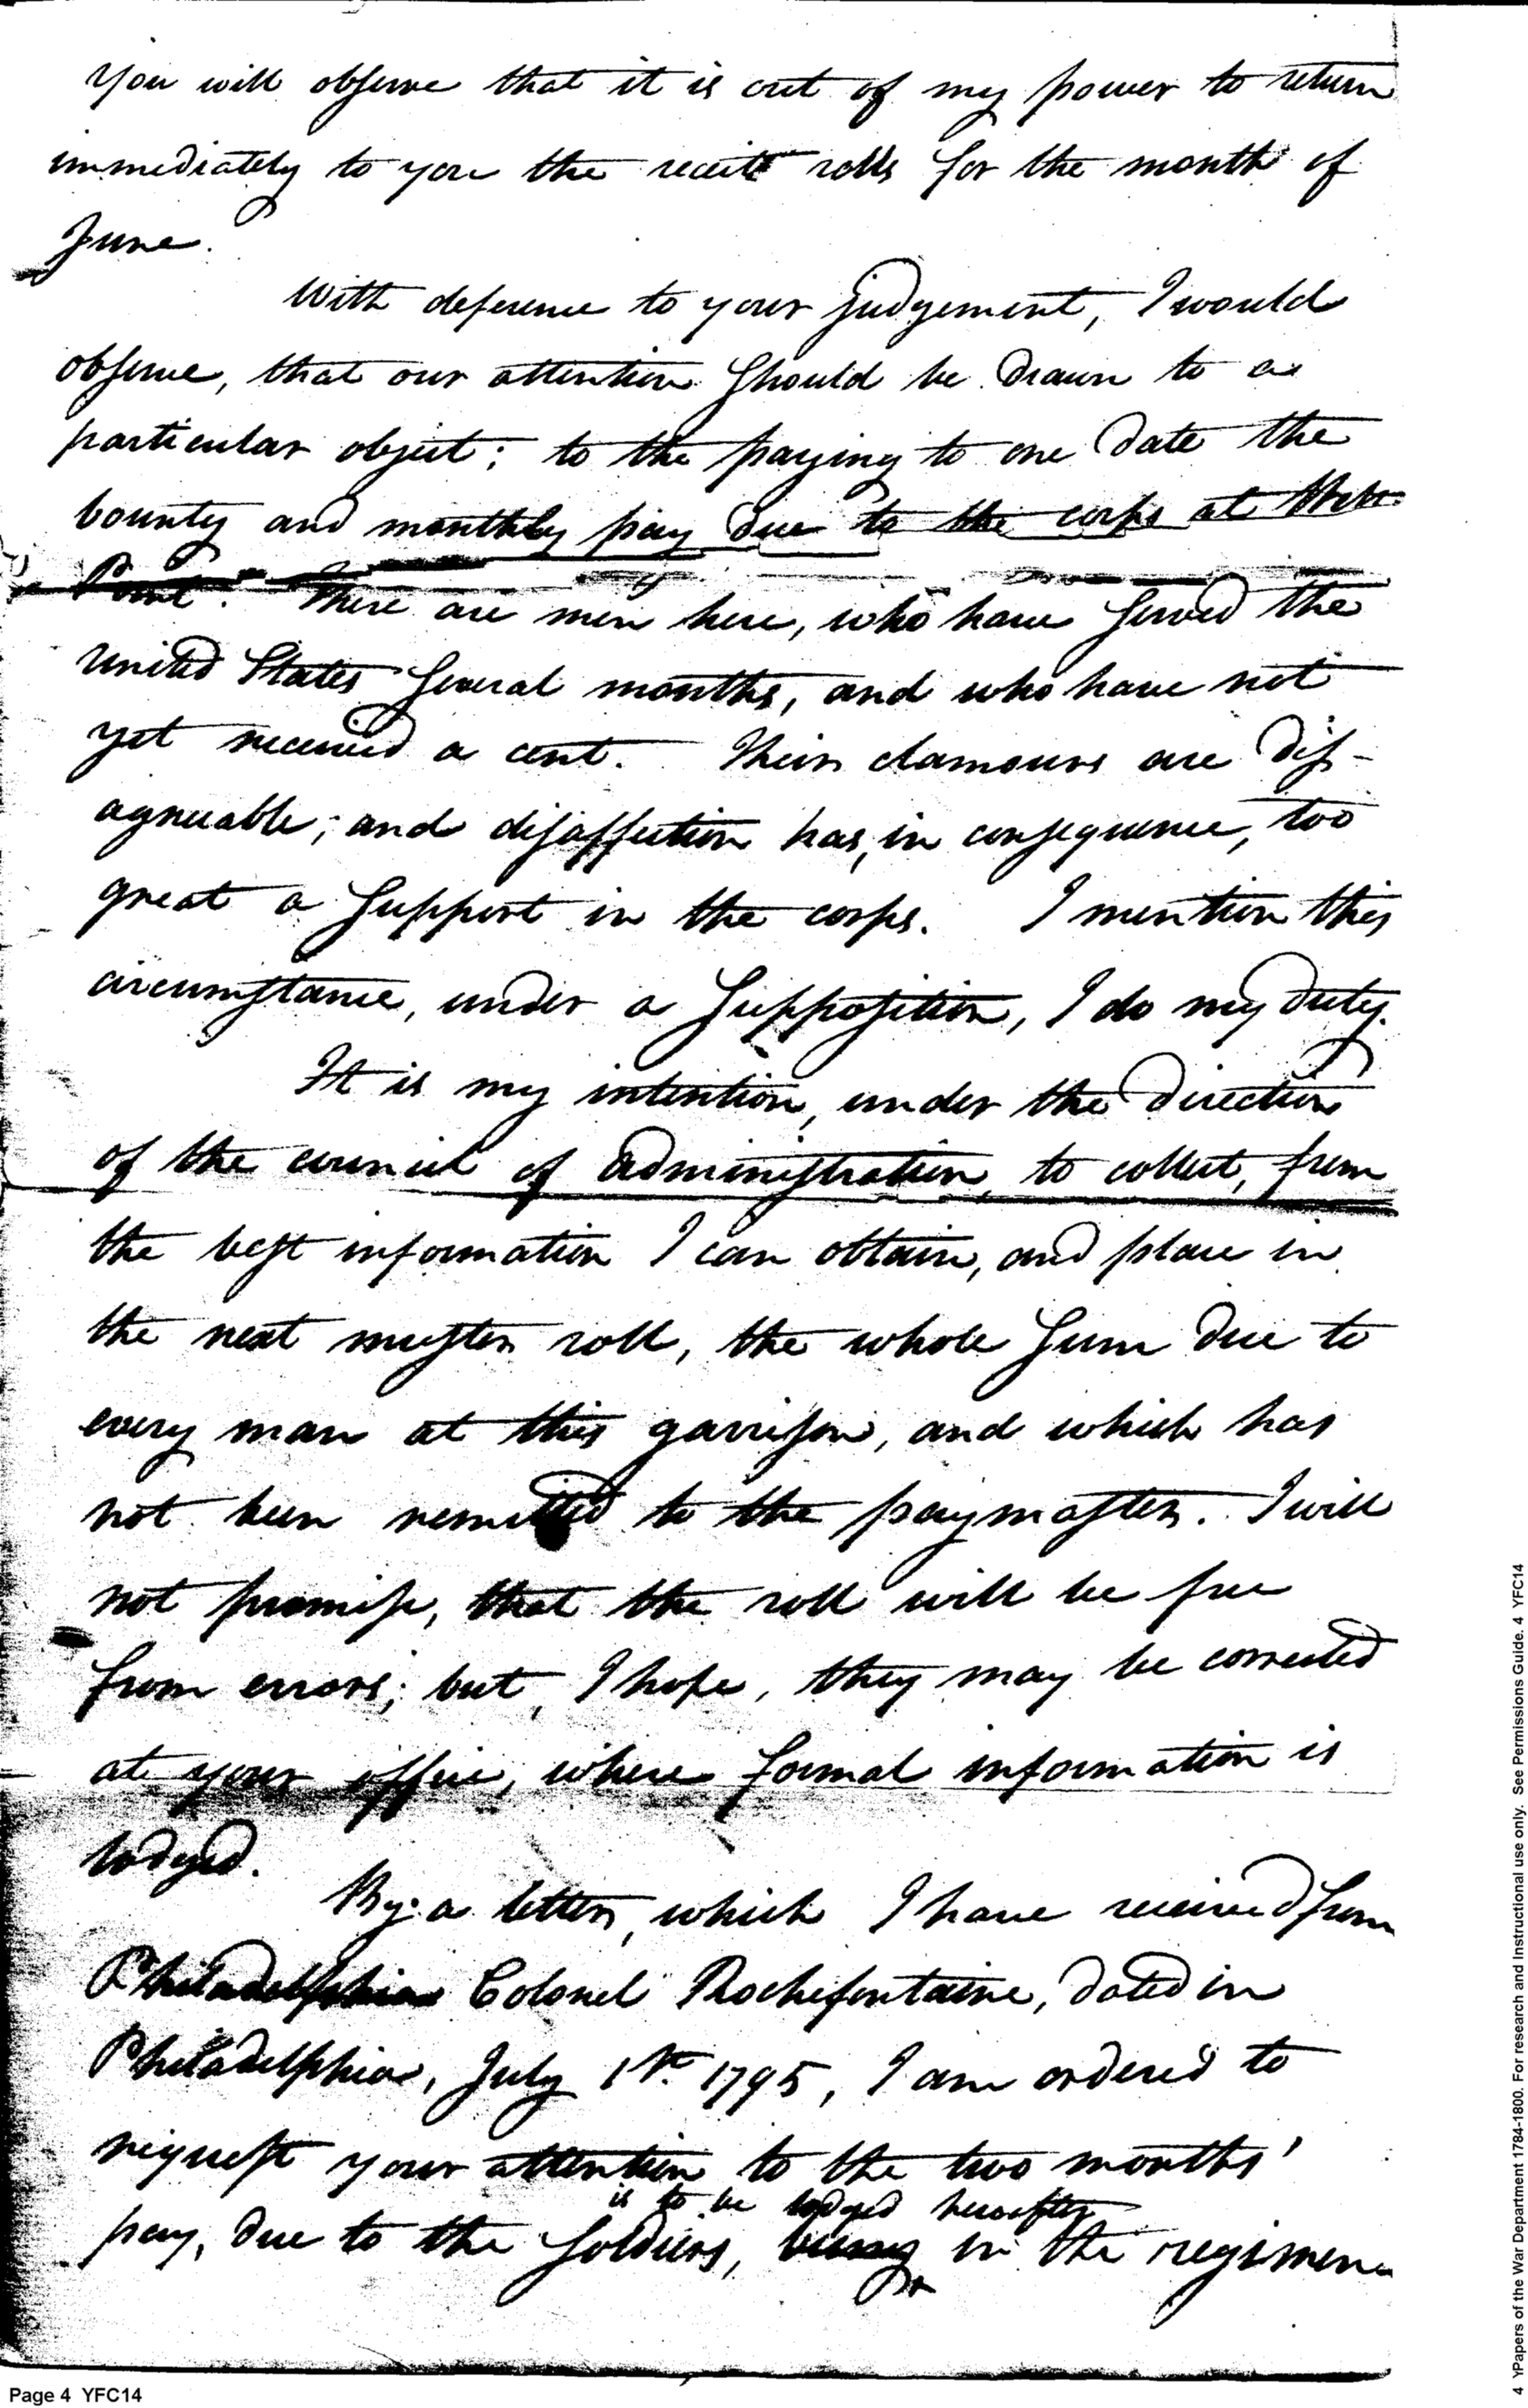 You will observe that it is out of my power to return
immediately to you the receit rolls for the month of
June.
With deference to your judgement, I would
observe, that our attention should be drawn to a
particular object; to the paying to one date the
bounty and monthly pay due to the corps at West
Point. There are men here, who have served the
United States several months, and who have not
yet received a cent. Their clamours are dis-
agreeable; and disaffection has, in consequence, too
great a support in the corps. I mention this
circumstance, under a supposition, I do my duty.
It is my intention, under the direction
of the council of administration, to collect, from
the best information I can obtain, and place in
the next muster roll, the whole sum due to
every man at this garrison, and which has
not been remitted to the paymaster. I will
not promise, that the roll will be free
from errors; but, I hope, they may be corrected
at your office, where formal information is
lodged.
By a letter, which I have received from
Philadelphia Colonel Rochefontaine, dated in
Philadelphia, July 1st. 1795, I am ordered to
request your attention to the two months'
is to be lodged hereafter
pay, due to the soldiers, in the regimen
Page 4 YFC14
4 YPapers of the War Department 1784-1800. For research and Instructional use only. See Permissions Guide. 4 YFC14